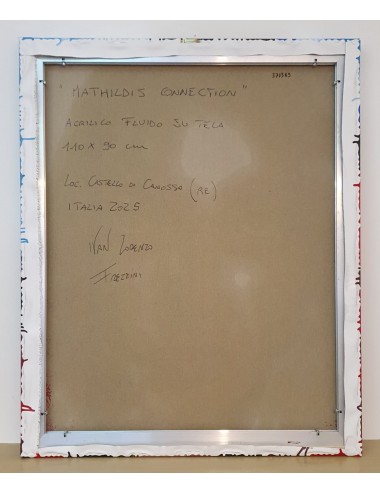 "MATHILDIS CONNECTION"
ACRILICO FLUIDO SU TELA
110 x 90 cm
LOC. CASTELLO DI CANOSSA (RE)
ITALIA 2025
IVAN LORENZO
FREZZINI